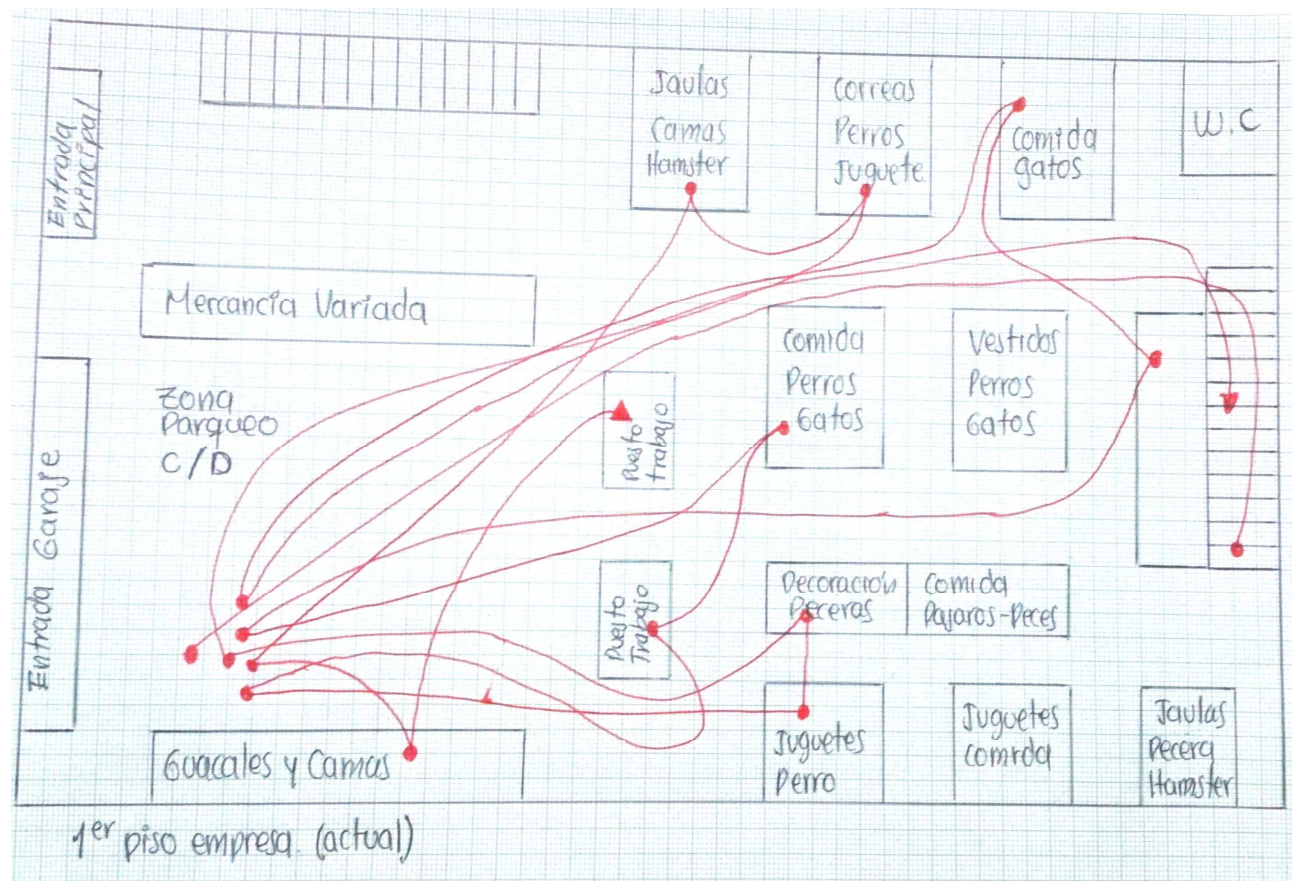 Entrada
Principal
Jaulas
Camas
Hamster
Correas
Perros
Juguete
Comida
gatos
W.C
Mercancía Variada
Zona
Parqueo
C/D
Entrada Garaje
Puesto
trabajo
Comida
Perros
Gatos
Vestidos
Perros
Gatos
Puesto
Trabajo
Decoración
Peceras
Comida
Pajaros-Peces
Guacales y Camas
Juguetes
Perro
Juguetes
comida
Jaulas
Pecera
Hamster
1er piso empresa. (actual)